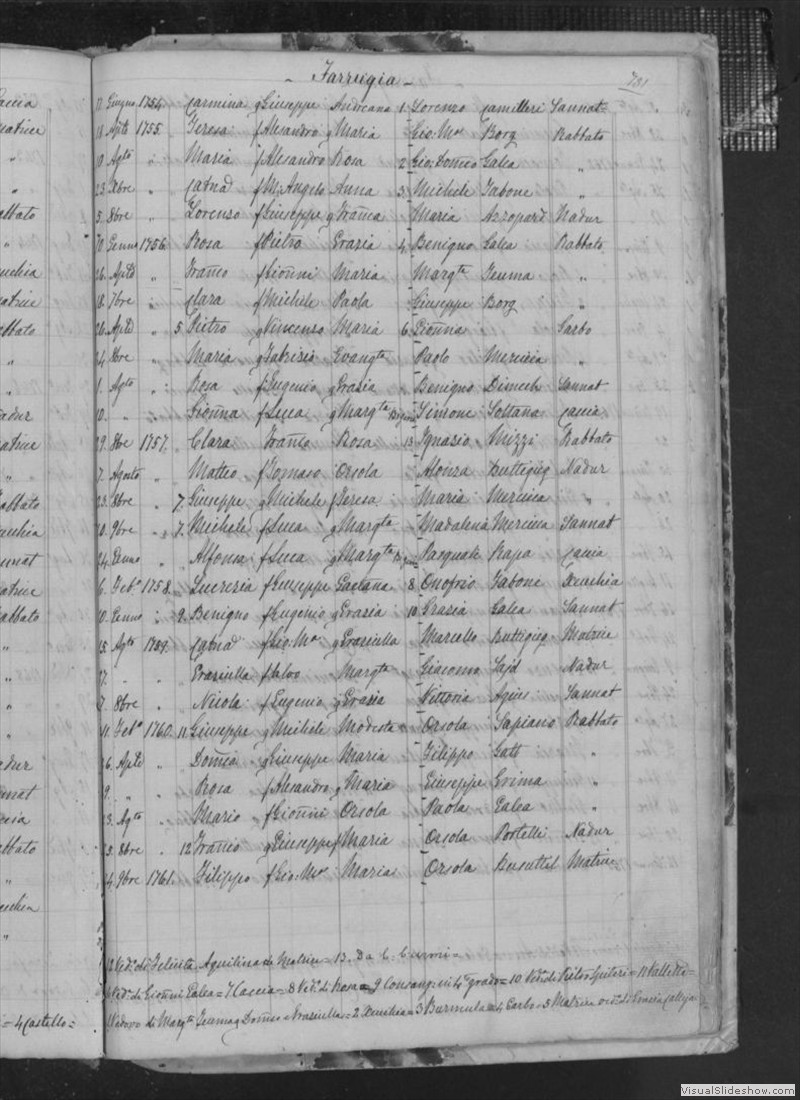 - Farrugia -
731
17 Giugno 1754. Carmina q Giuseppe Andreana 1. Lorenzo Camilleri Sannat
18 Aple 1755. Teresa f Alesandro q Maria Gio: Ma Borg Rabbato
19 Agto " Maria f Alesandro Rosa 2 Gio: Domco Galea "
23 Xbre " Catna f M: Angelo Anna 3 Michele Tabone "
5 8bre " Lorenzo f Giuseppe q Franca Maria Azzopard Nadur
Genno 1756 Rosa f Pietro Grazia 4 Benigno Galea Rabbato
26 Aple Franco f Gionni Maria Margta Teuma "
18 7bre " Clara f Michele Paola Giuseppe Borg "
26 Aple " 5 Pietro q Vincenzo Maria 6 Gionna Garbo
24 8bre " Maria q Fabrizio Evangta Paolo Mercieca "
1 Agto " Rosa f Eugenio q Grazia Benigno Dimech Sannat
10 " " Gionna f Luca q Margta Simone Soltana Caccia
29 8bre 1757. Clara Franco Rosa 13 Ignazio Mizzi Rabbato
7 Agosto " Matteo f Tomaso Orsola Alonza Buttigieg Nadur
23 8bre " 7. Giuseppe q Michele f Teresa Maria Mercieca "
10 9bre " 7. Michele f Luca q Margta Madalena Mercieca Sannat
24 Genno Alfonsa f Luca q Margta Pasquale Rapa Caccia
6 Febo 1758. Lucrezia f Giuseppe Gaetana 8 Onofrio Tabone Xeuchia
10 Genno " 9. Benigno f Eugenio q Grazia 10 Grazia Galea Sannat
15 Agto 1759. Catna f Gio: Ma q Graziulla Marcello Buttigieg Matrice
17 " " Graziulla f Salvo Margta Giacomo Said Nadur
7 8bre " Nicola f Eugenio q Grazia Vittoria Agius Sannat
11 Febo 1760. 11 Giuseppe q Michele Modesta Orsola Sapiano Rabbato
26 Aple Domco q Giuseppe Maria Filippo Gatt "
9 " " Rosa f Alesandro q Maria Giuseppe Grima "
13 Agto " Mario f Gionni Orsola Paola Galea "
5 8bre " 12 Franco q Giuseppe f Maria Orsola Portelli Nadur
24 9bre 1761. Filippo f Gio: Ma Maria Orsola Busuttil Matrice
12 Ved. di Felicita Aquilina de Matrice = 13. Da C. Curmi =
6 Ved. di Gionni Galea = 7 Caccia = 8 Ved. di Rosa = 9 Consang. in 4to grado = 10 Ved. di Pietro Spiteri = 11 Valletta =
1 Vedovo di Margta Teuma q Domco e Graziulla = 2 Xeuchia = 3 Burmula = 4 Garbo = 5 Matrice o ved. di Grazia Calleja
= 4 Castello =
Caccia
Matrice
"
"
Rabbato
"
Xeuchia
Matrice
Rabbato
"
"
Nadur
Matrice
"
Rabbato
Xeuchia
Sannat
Matrice
Rabbato
"
"
"
"
Nadur
Sannat
Caccia
Rabbato
"
Xeuchia
"
VisualSlideshow.com